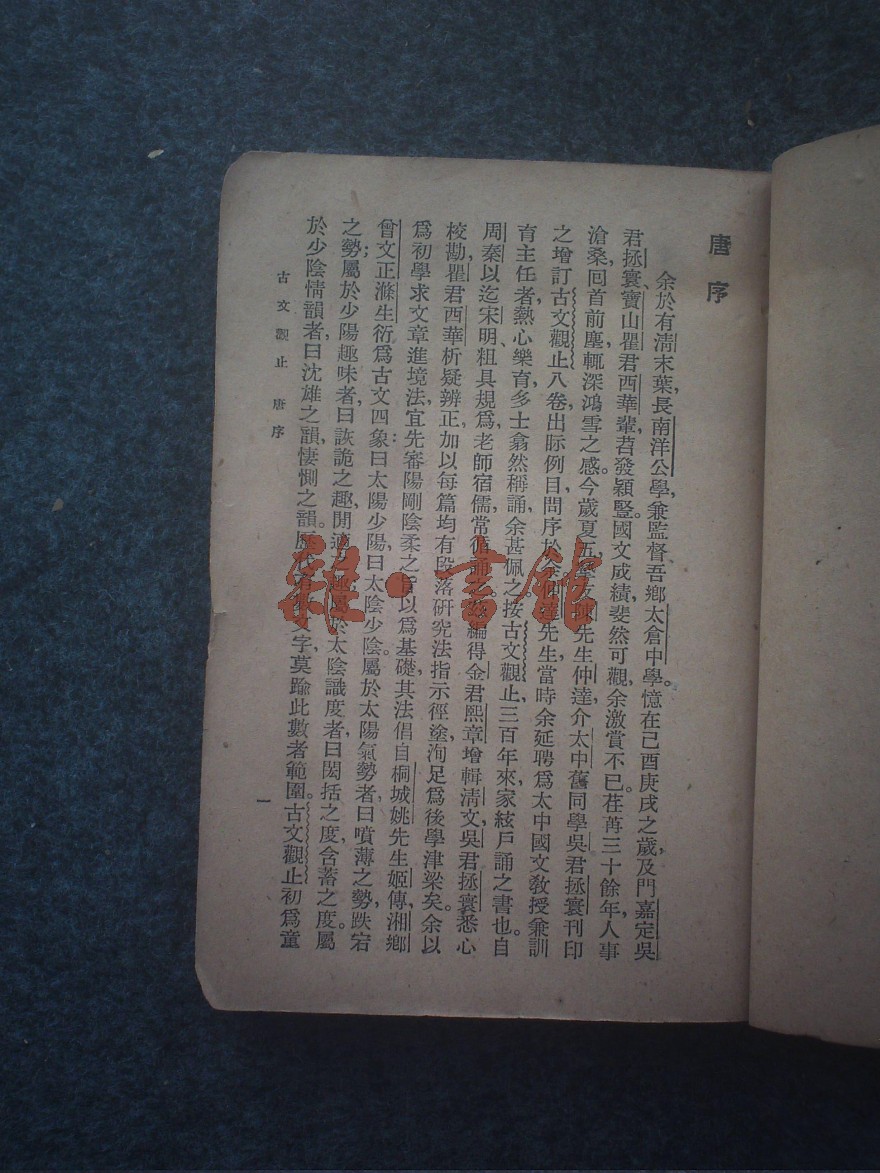 唐序
余於有淸末葉，長南洋公學，兼監督吾鄕太倉中學。憶在己酉庚戌之歲，及門嘉定吳
君拯寰、寶山瞿君西華輩，苕發穎豎。國文成績，斐然可觀，余激賞不已。荏苒三十餘年，人事
滄桑，囘首前塵，輒深鴻雪之感。今歲夏五，友陳先生仲達，介太中舊同學吳君拯寰刊印
之增訂古文觀止八卷出眎例目，問序於余。仲達先生，當時余延聘爲太中國文敎授兼訓
育主任者，熱心樂育，多士翕然稱誦，余甚佩之。按古文觀止，三百年來家絃戶誦之書也。自
周秦以迄宋明，粗具規爲，老師宿儒，常循誦之。編得金君熙章增輯淸文，吳君拯寰悉心
校勘，瞿君西華析疑辨正，加以每篇均有段落硏究法，指示徑塗，洵足爲後學津梁矣。余以
爲初學求文章進境法，宜先審陽剛陰柔之旨以爲基礎，其法倡自桐城姚先生姬傳，湘鄕
曾文正滌生衍爲古文四象：曰太陽少陽，曰太陰少陰。屬於太陽氣勢者，曰噴薄之勢，跌宕
之勢；屬於少陽趣味者，曰詼詭之趣，閒適之趣；屬於太陰識度者，曰閎括之度，含蓄之度。屬
於少陰情韻者，曰沈雄之韻，悽惻之韻。歷代文字，莫踰此數者範圍。古文觀止初爲童
古文觀止 唐序
一
雜·書館